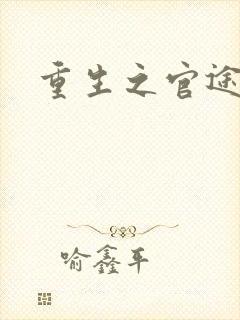 重生之官途
喻鑫平